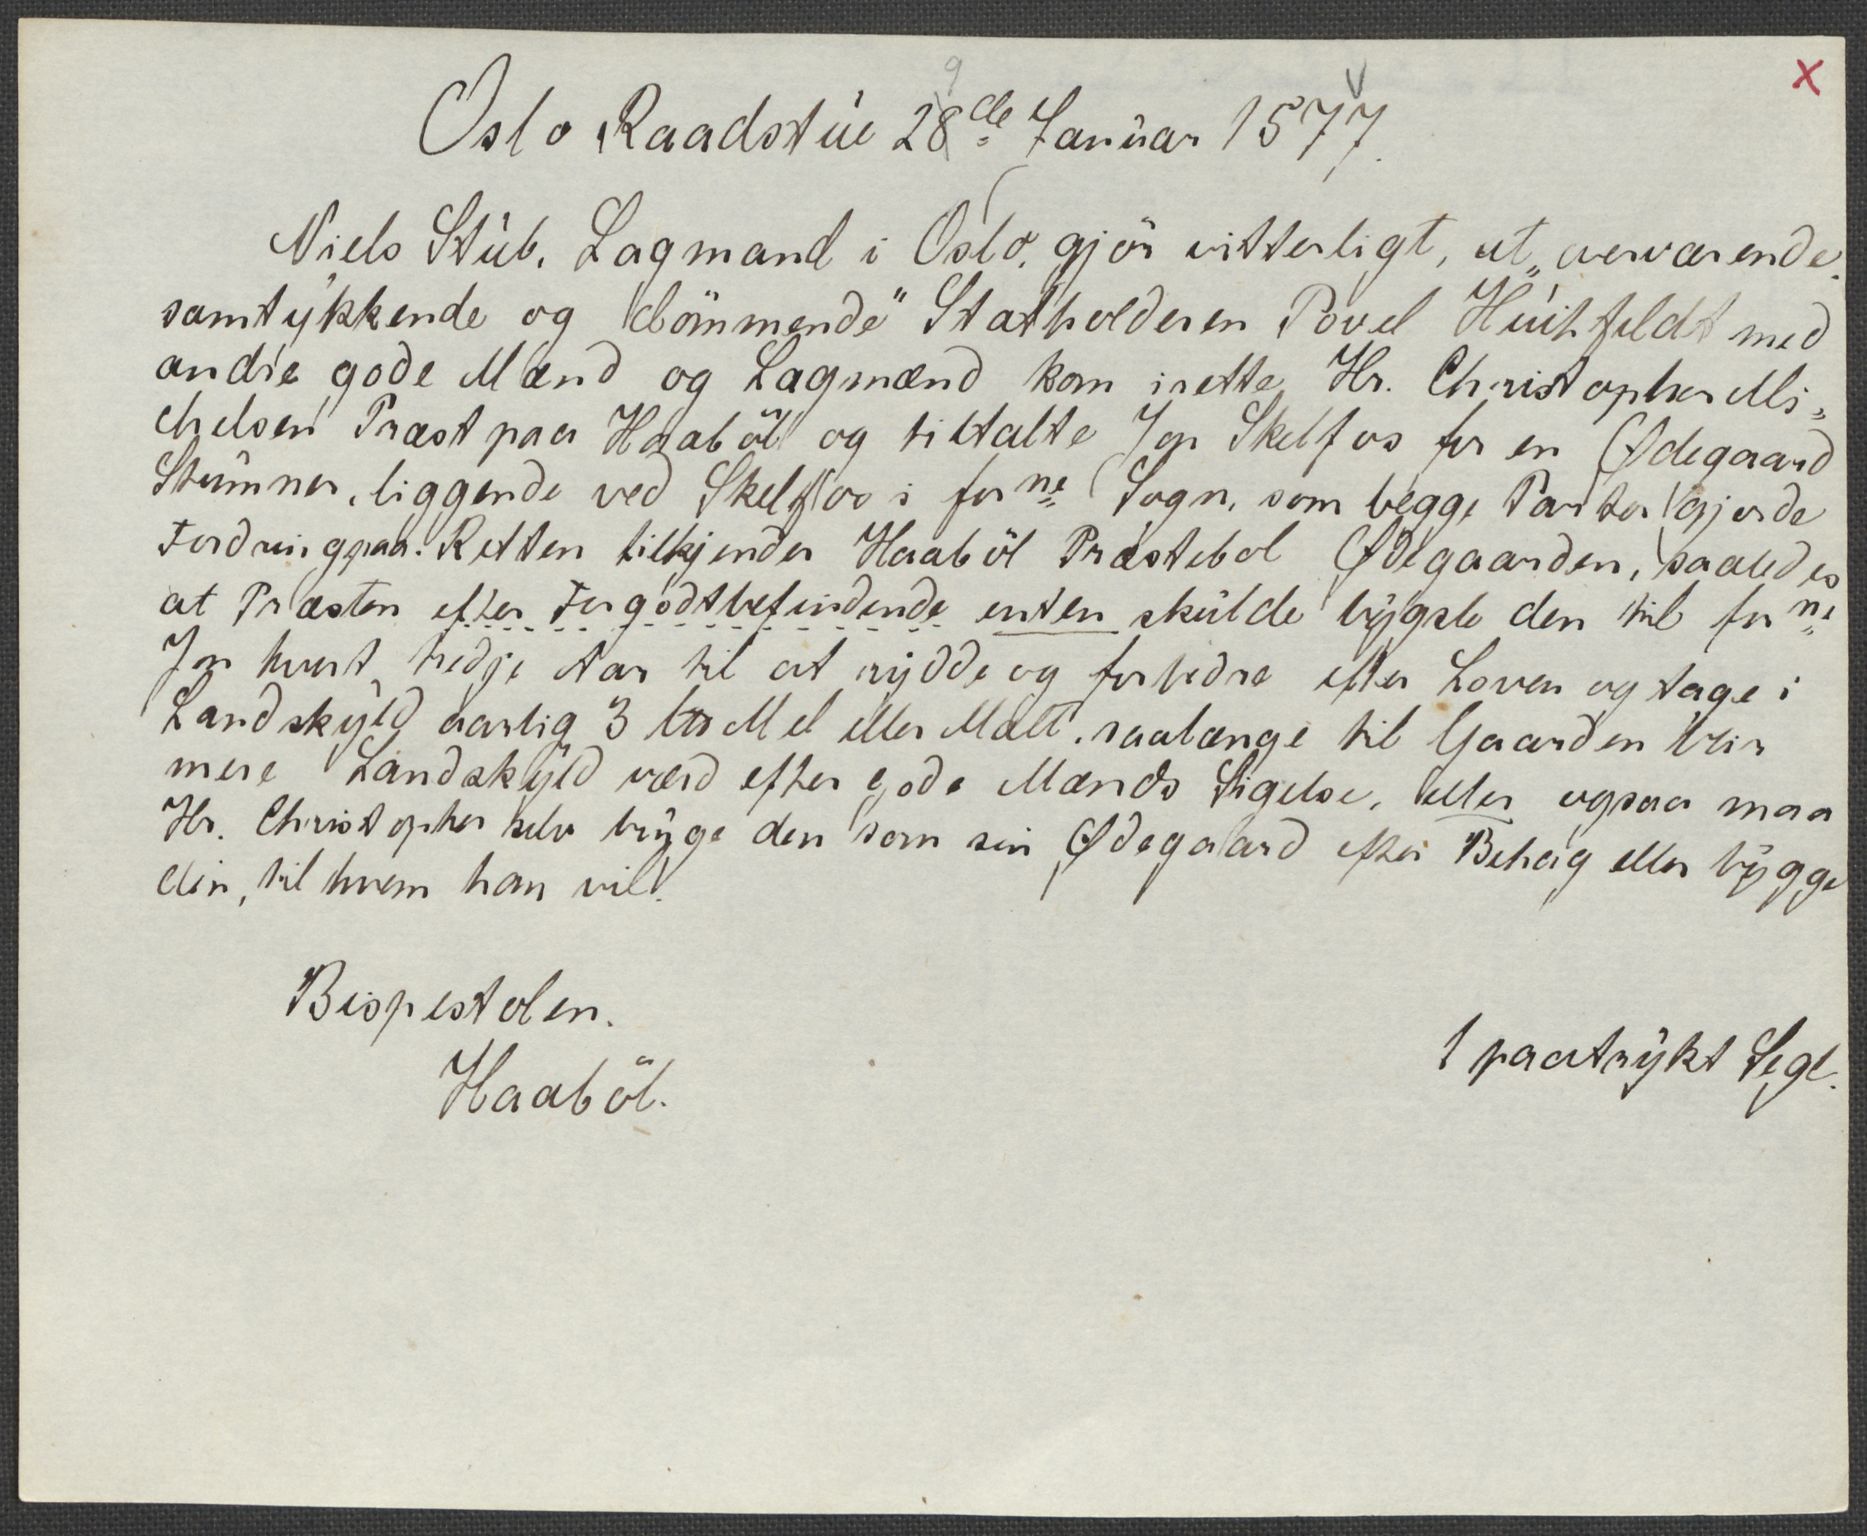 x
Oslo Raadstue 28de Januar 1577.
9
Niels Stub, Lagmand i Oslo, gjör vitterligt, at „overværende,
samtykkende og dömmende" Statholderen Povel Huitfeldt med
andre gode Mænd og Lagmænd kom irette Hr. Christopher Mi=
chelsen Præst paa Haaböl og tiltalte Jon Skelfos for en Ødegaard
Stumner, liggende ved Skelfos i forne Sogn, som begge Parter gjorde
Fordring paa. Retten tilkjender Haaböl Præstebol Ødegaarden, saaledes
at Præsten efter Forgodtbefindende enten skulde bygsle den til forne
Jon hvert tredje Aar til at rydde og forbedre efter Loven og tage i
Landskyld aarlig 3 Mel eller Malt, saalænge til Gaarden blir
mere Landskyld værd efter gode Mænds Sigelse, eller ogsaa maa
Hr. Christopher selv bruge den som sin Ødegaard efter Behag eller bygge
den, til hvem han vil.
Bispestolen.
Haaböl.
1 paatrykt Segl.